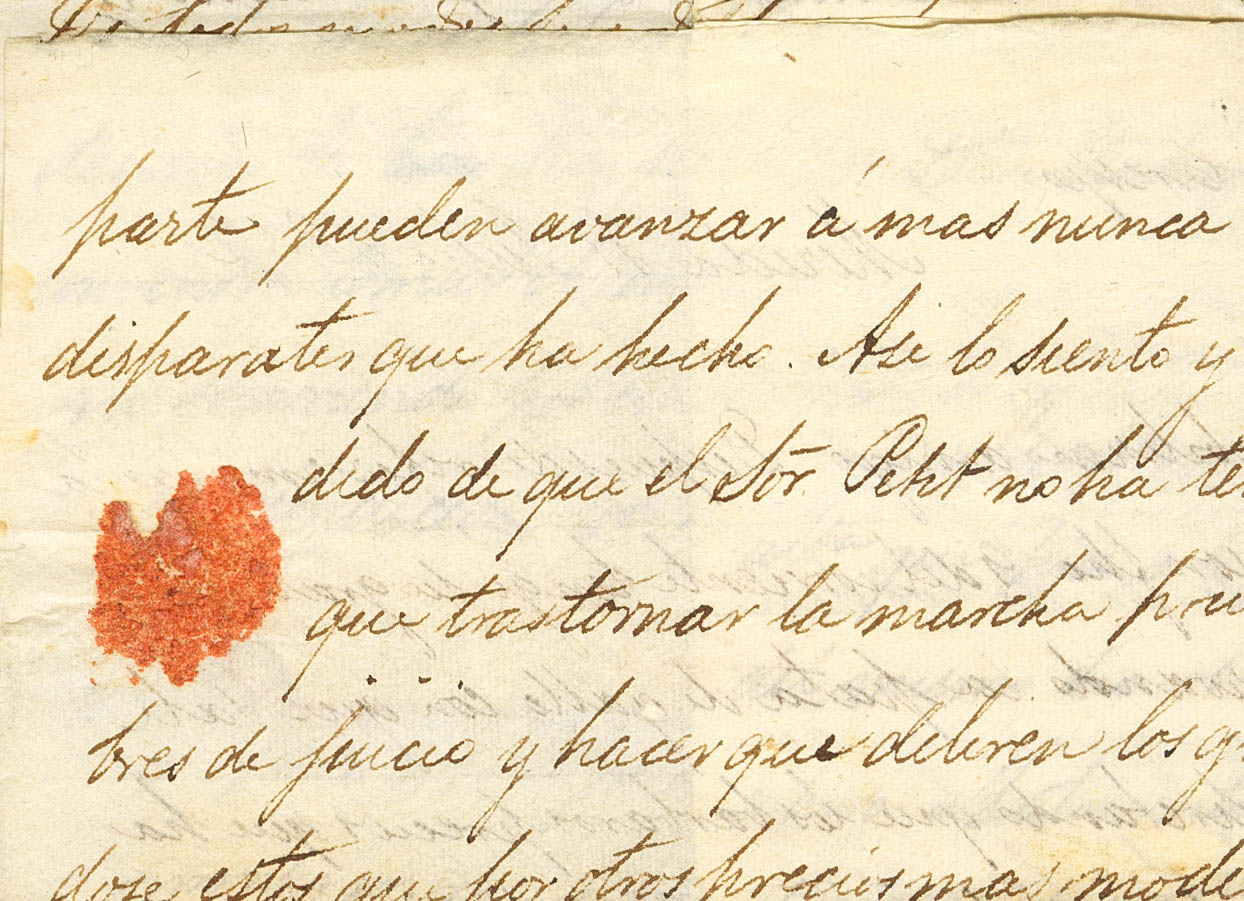 parte pueden avanzar á mas nunca
disparates que ha hecho. Asi lo siento y
dido de que el Sör. Petit no ha te
que trastornar la marcha pru
bres de juicio y hacer que deliren los g
dose estos que por otros precios mas mode